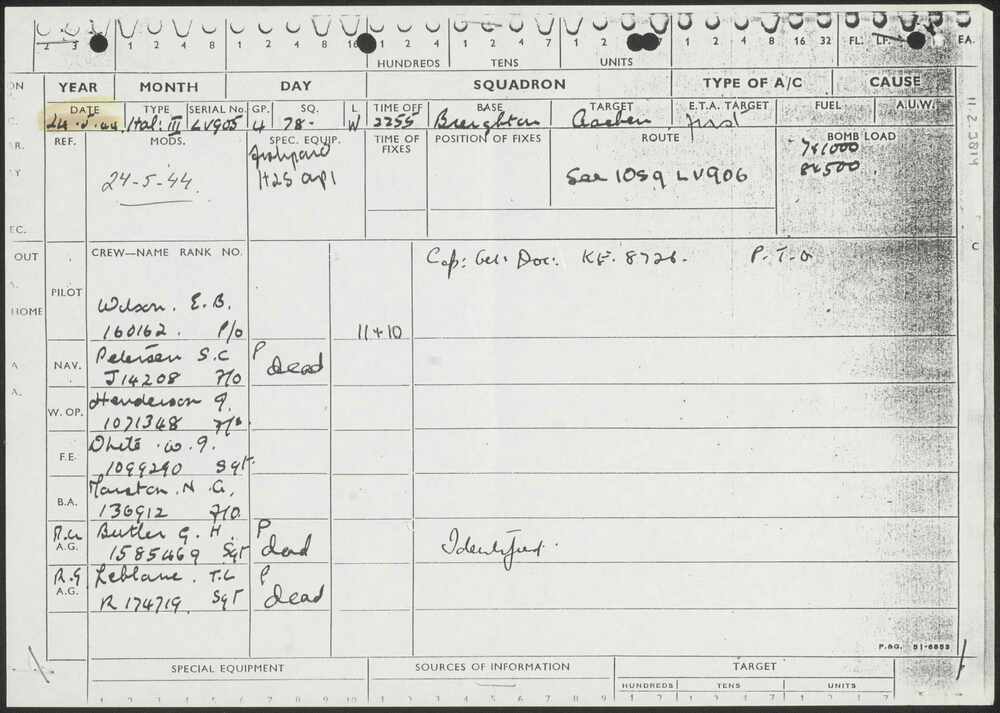 2 3 1 2 4 8 1 2 4 8 16 1 2 4 7 1 2 4 8 1 2 4 7 1 2 4 8 16 32 FL. LF. EA.
HUNDREDS TENS UNITS
ON YEAR MONTH DAY SQUADRON TYPE OF A/C CAUSE
DATE TYPE SERIAL No. GP. SQ. L TIME OFF BASE TARGET E.T.A. TARGET FUEL A.U.W.
24.5.44. Hal: III LV905 4 78. W 2255 Breighton Aachen first
REF. MODS. SPEC. EQUIP. TIME OF FIXES POSITION OF FIXES ROUTE BOMB LOAD
24-5-44.
Fishpond
H2S
See 1059 LV906
7x1000
8x500
EC.
OUT
HOME
CREW—NAME RANK NO.
Cap: Ger: Doc: KE. 8726. P.T.O
PILOT
Wilson. E.B.
160162. P/O
11+10
NAV.
Petersen S.C
J14208 F/O
P
dead
W. OP.
Henderson
1071348
F.E.
White .W.
1099290 Sgt.
B.A.
Marston. N.G.
136912 F/O.
A.G.
Butler G. H.
1585469 Sgt
P
dead
Identified.
R.G
A.G.
Leblanc. T.L
R174719. Sgt
P
dead
P.&G. 51-6853
SPECIAL EQUIPMENT SOURCES OF INFORMATION TARGET
HUNDREDS TENS UNITS
1 2 3 4 5 6 7 8 9 10 1 2 3 4 5 6 7 8 9 1 2 4 7 1 2 4 7 1 2 4 7